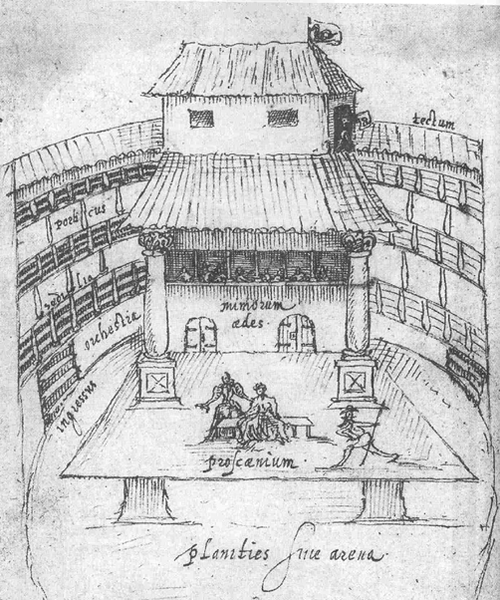 tectum
porticus
sedilia
orchestra
ingressus
mimorum
ædes.
proscænium.
planities siue arena.